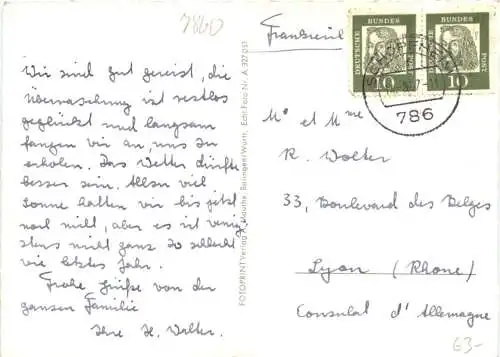 7860
Wir sind gut gereist, die
Überraschung ist restlos
geglückt und langsam
fangen wir an, uns zu
erholen. Das Wetter dürfte
besser sein. Allzu viel
Sonne hatten wir bis jetzt
noch nicht, aber es ist wenig-
stens nicht ganz so schlecht
wie letztes Jahr.
Frohe Grüße von der
ganzen Familie
Ihre H. Wolter.
FOTOPRINT Verlag A. Mauthe, Balingen/Württ. Echt Foto Nr. A 327051
Frankreich
DEUTSCHE BUNDESPOST
10
DEUTSCHE BUNDESPOST
10
SCHOPFHEIM
786
Mr et Mme
R. Wolter
33, Boulevard des Belges
Lyon (Rhone)
Consulat d'Allemagne
E3-